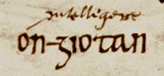 intellegere
on-giotan